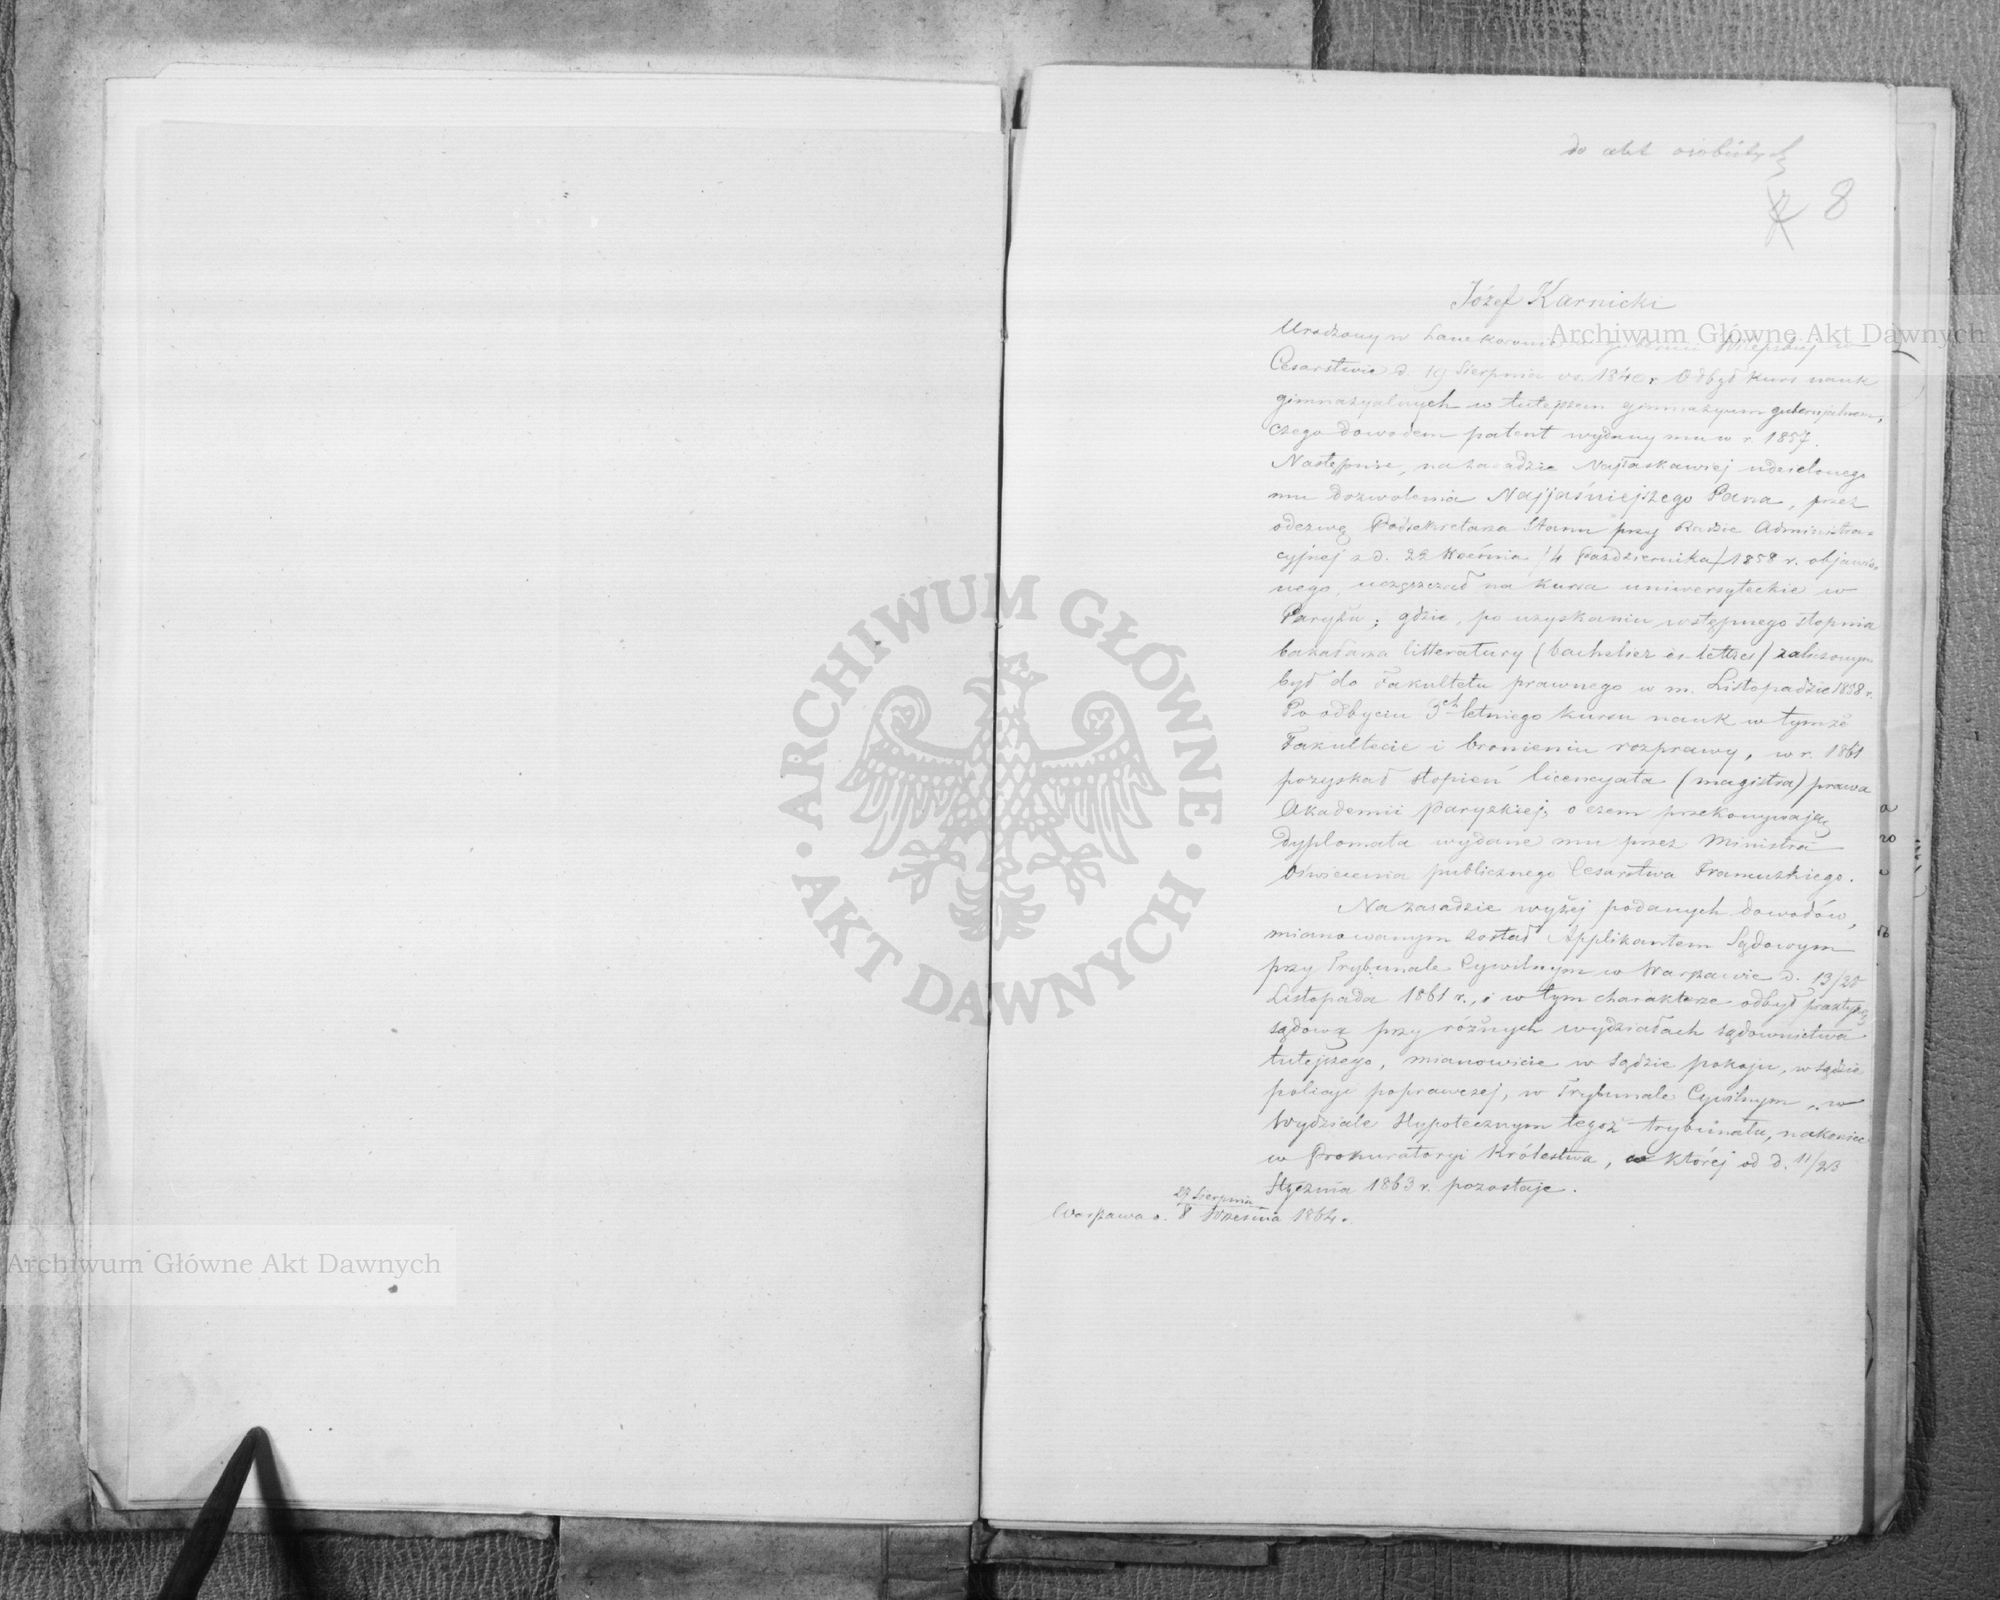 do akt osobistych
8
Józef Karnicki
Urodzony w Lanckoronie w gubernii Witepskiej w
Cesarstwie d. 19 Sierpnia v.s. 1840 r. Odbył kurs nauk
gimnazyalnych w tutejszem gimnazyum gubernjalnem,
czego dowodem patent wydany mu w r. 1857.
Następnie, na zasadzie Najłaskawiej udzielonego
mu dozwolenia Najjaśniejszego Pana, przez
odezwę Podsekretarza Stanu przy Radzie Administra=
cyjnej z d. 22 Września /4 Października/ 1858 r. objawio=
nego, uczęszczał na kursa uniwersyteckie w
Paryżu; gdzie, po uzyskaniu wstępnego stopnia
bakałarza litteratury (bachelier ès-lettres) zaliczonym
był do Fakultetu prawnego w m. Listopadzie 1858 r.
Po odbyciu 3ch letniego kursu nauk w tymże
Fakultecie i bronieniu rozprawy, w r. 1861
pozyskał stopień licencyata (magistra) prawa
Akademii Paryzkiej, o czem przekonywają
dyplomata wydane mu przez Ministra
Oświecenia publicznego Cesarstwa Francuzkiego.
Na zasadzie wyżej podanych dowodów,
mianowanym został Applikantem Sądowym
przy Trybunale Cywilnym w Warszawie d. 13/25
Listopada 1861 r., i w tym charakterze odbył praktykę
sądową przy różnych wydziałach sądownictwa
tutejszego, mianowicie w Sądzie pokoju, w sądzie
policyi poprawczej, w Trybunale Cywilnym, w
Wydziale Hypotecznym tegoż trybunału, nakoniec
w Prokuratoryi Królestwa, w której od d. 11/23
Stycznia 1863 r. pozostaje.
Warszawa d. 27 Sierpnia
8 Września 1864.
Archiwum Główne Akt Dawnych
Archiwum Główne Akt Dawnych
ARCHIWUM GŁÓWNE · AKT DAWNYCH ·